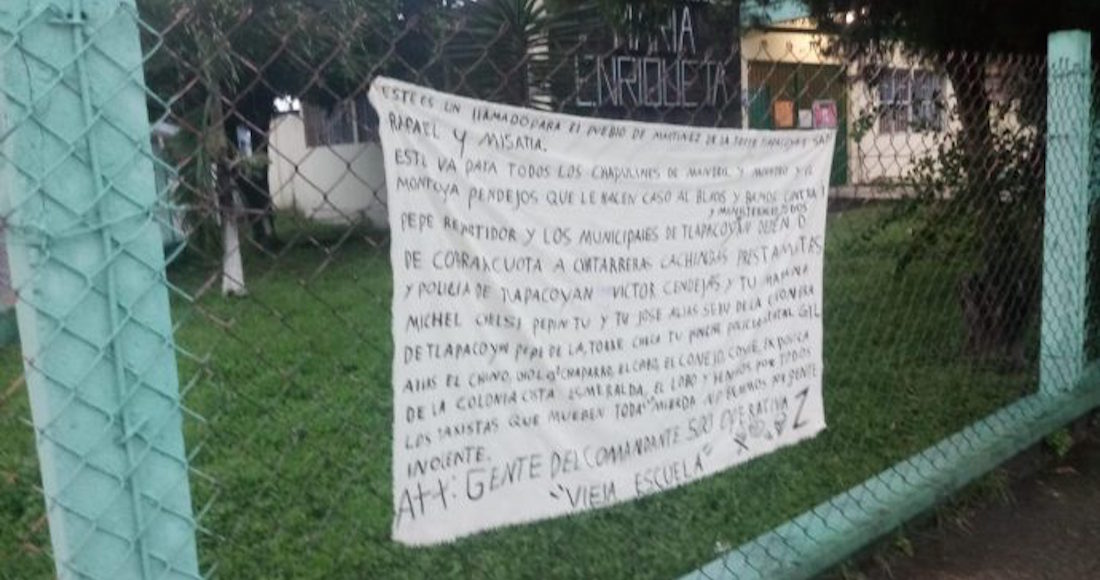 MARIA
ENRIQUETA
ESTE ES UN llAMADO PARA El PUEBLO DE MARTINEZ DE LA TORRE TlAPACOYAN SAN
RAFAEL Y MISATLA.
ESTE VA PARA TODOS LOS CHAPULINES DE MANDRIL Y MUERTO Y EL
MONTOYA PENDEJOS QUE LE HACEN CASO AL BLAOS Y BAMOS CONTRA
Y MINISTERIALES TODOS
PEPE REPARTIDOR Y LOS MUNICIPALES DE TLAPACOYAN DEJEN
DE COBRAR CUOTA A CHATARRERAS CACHINBAS PRESTAMISTAS
Y POLICIA DE TLAPACOYAN VICTOR CENDEJAS Y TU MAÑANA
MICHEL CHELSI PEPIN TU Y TU JOSE ALIAS SEJO DE LA
DE TLAPACOYAN PEPE DE LA TORRE CHECA TU PINCHE POLICIA GIL
ALIAS EL CHINO, CHAPARRO, EL CABO, EL CONEJO,
DE LA COLONIA CISTA ESMERALDA, EL LOBO Y BENIMOS POR TODOS
LOS TAXISTAS QUE MUEBEN TODA MIERDA NO GENTE
INOCENTE.
Att: GENTE DEL COMANDANTE OPERATIVA Z
"VIEJA ESCUELA"